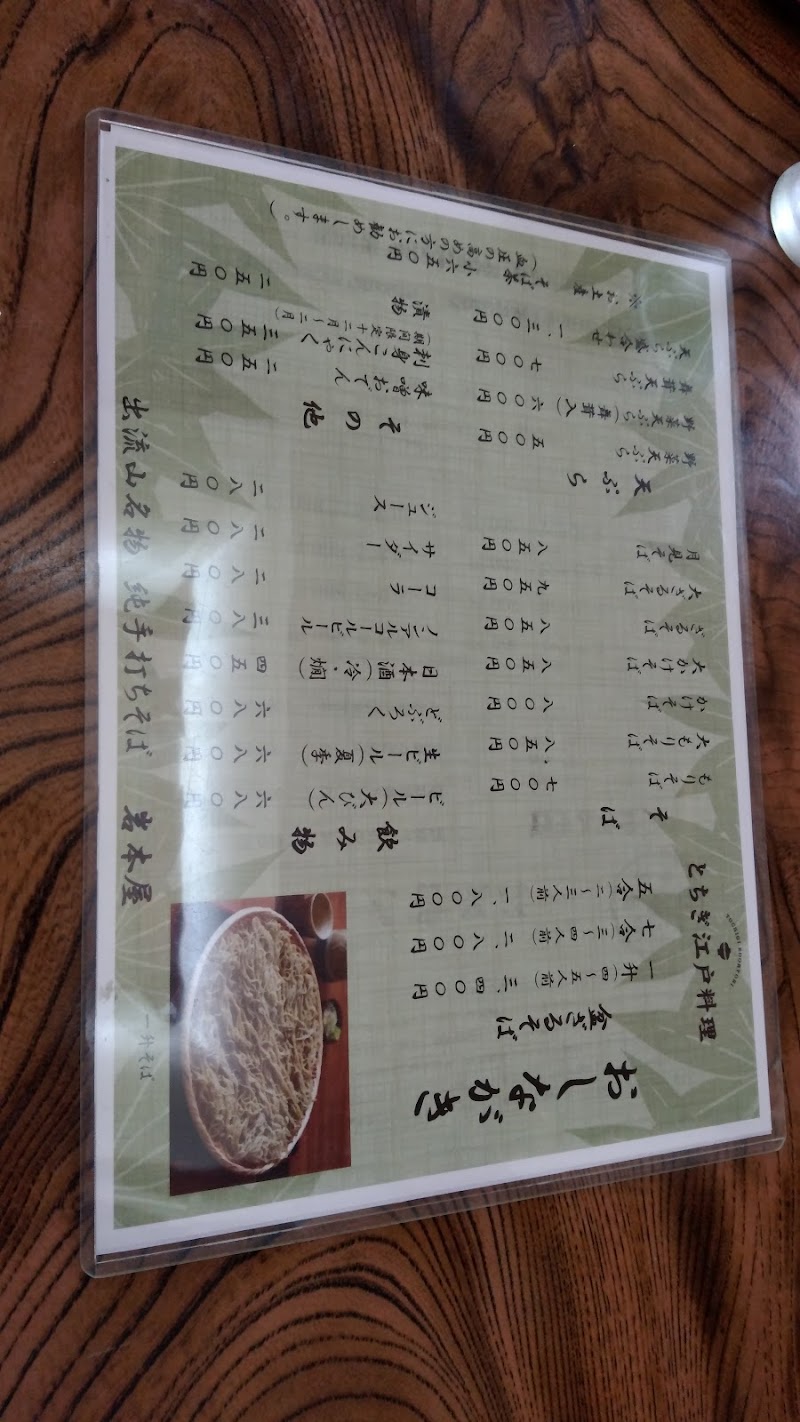 とちぎ江戸料理
おしながき
盆ざるそば
一升(四〜五人前) 三、四〇〇円
七合(三〜四人前) 二、八〇〇円
五合(二〜三人前) 一、八〇〇円
そば
もりそば 七〇〇円
大もりそば 八五〇円
かけそば 八〇〇円
大かけそば 八五〇円
ざるそば 八五〇円
大ざるそば 九五〇円
月見そば 八五〇円
天ぷら
野菜天ぷら 五〇〇円
野菜天ぷら(舞茸入) 六〇〇円
舞茸天ぷら 七〇〇円
天ぷら盛合わせ 一、三〇〇円
※お土産 そば茶 小六五〇円
(血圧の高めの方にお勧めします。)
飲み物
ビール(大びん) 六八〇円
生ビール(夏季) 六八〇円
どぶろく 六八〇円
日本酒(冷・燗) 四五〇円
ノンアルコールビール 三八〇円
コーラ 二八〇円
サイダー 二八〇円
ジュース 二八〇円
その他
味噌おでん 二五〇円
刺身こんにゃく 三五〇円
(期間限定十二月〜二月)
漬物 二五〇円
一升そば
出流山名物 純手打ちそば 吉本屋